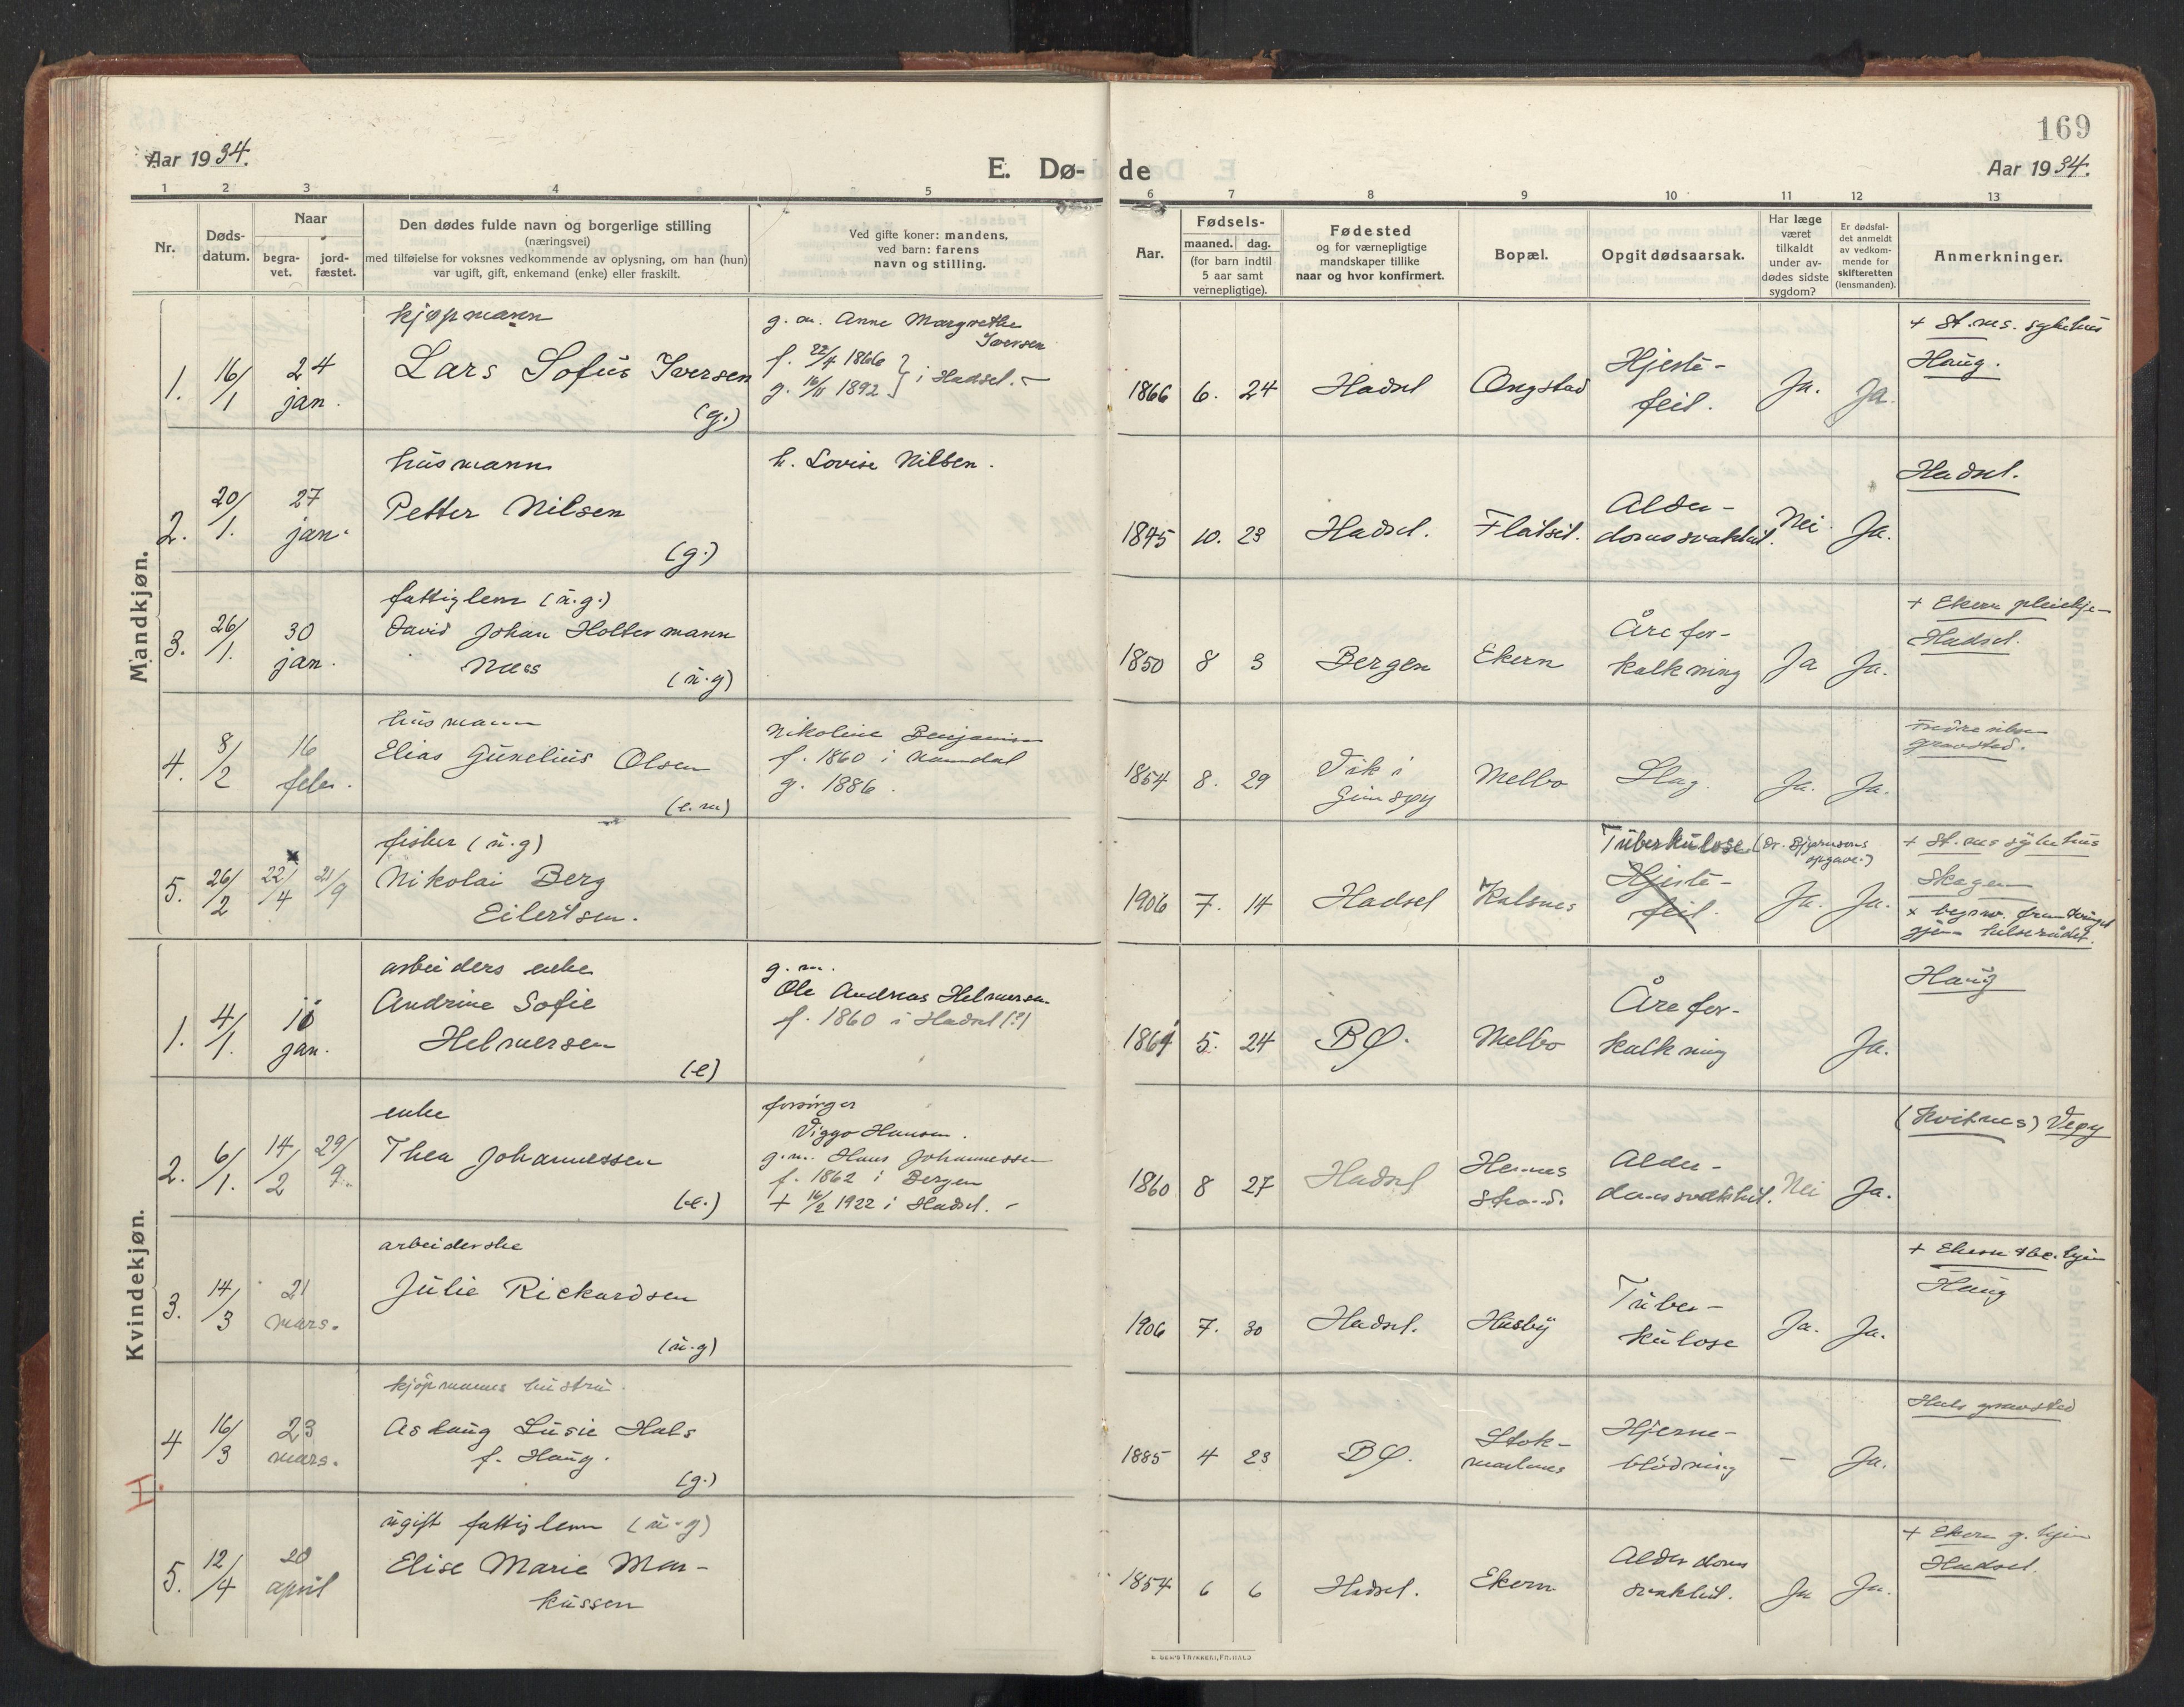 169
Aar 1934.
E. Dø-
de
Aar 1934.
1 2 3 4 5 6 7 8 9 10 11 12 13
Nr.
Døds-
datum.
Naar
begra-
vet.
jord-
fæstet.
Den dødes fulde navn og borgerlige stilling
(næringsvei)
med tilføielse for voksnes vedkommende av oplysning, om han (hun)
var ugift, gift, enkemand (enke) eller fraskilt.
Ved gifte koner: mandens,
ved barn: farens
navn og stilling.
Aar.
Fødsels-
maaned. dag.
(for barn indtil
5 aar samt
vernepligtige).
Fødested
og for værnepligtige
mandskaper tillike
naar og hvor konfirmert.
Bopæl.
Opgit dødsaarsak.
Har læge
været
tilkaldt
under av-
dødes sidste
sygdom?
Er dødsfal-
det anmeldt
av vedkom-
mende for
skifteretten
(lensmanden).
Anmerkninger.
Mandkjøn.
1.
16/1
24
jan.
kjøpmann
Lars Sofus Iversen
(g.)
g. m. Anne Margrethe
Iversen
f. 22/4 1866
g. 16/11 1892 } i Hadsel.
1866 6. 24
Hadsel
Ongstad
Hjerte-
feil.
Ja.
Ja.
+ St.ms. sykehus
Haug.
2.
20/1.
27
jan.
husmann
Petter Nilsen
(g.)
h. Lovise Nilsen.
1845 10. 23
Hadsel.
Flatset.
Alder-
domssvakhet.
Nei
Ja.
Hadsel.
3.
26/1.
30
jan.
fattiglem (u.g.)
David Johan Holtermann
Næss
(u.g)
1850 8 3
Bergen
Ekern
Årefor-
kalkning
Ja
Ja.
+ Ekern pleiehje-
Hadsel.
4.
8/2
16
febr.
husmann
Elias Gunelius Olsen
(e.m)
Nikoline Benjamin
f. 1860 i Namdal
g. 1886.
1854 8. 29
Vik i
Gimsøy
Melbo
Slag.
Ja.
Ja.
gravsted.
5.
26/2
x
22/4
21/9
fisker (u.g)
Nikolai Berg
Eilertsen.
1906 7. 14
Hadsel
Kalsnes
Tuberkulose (Dr. Bjørnsons
opgave.)
Hjerte-
feil.
Ja.
Ja.
+ St.ms sykehus
Skagen
x begrav.
gjenn helserådet.
Kvindekjøn.
1.
4/1.
jan.
arbeiders enke
Andrine Sofie
Helmersen
(e)
g. m.
Ole Andreas Helmersen
f. 1860 i Hadsel (?)
1864 5. 24
BØ.
Melbo
Årefor-
kalkning
Ja.
Haug
2.
6/1.
14/2
29/9.
enke
Thea Johannessen
(e.)
forsørger
Viggo Hansen.
g.m. Hans Johannessen
f. 1862 i Bergen
+ 16/2 1922 i Hadsel.
1860 8 27
Hadsel
Hennes
strand.
Alder-
domssvakhet.
Nei
Ja.
(Kvitnes) Vegg
3.
14/3
21
mars.
arbeiderske
Julie Rickardsen
(u.g)
1906 7. 30
Hadsel.
Husby
Tuber-
kulose
Ja.
Ja.
+ Ekern tbc. hjem
Haug
4
16/3
23
mars.
kjøpmanns hustru.
Aslaug Lusie Hals
f. Haug.
(g.)
1885 4 23
BØ.
Stok-
marknes
Hjerne-
blødning
-
Ja.
Hals gravsted
I.
5.
12/4
20
april
ugift fattiglem (u.g)
Elise Marie Mar-
kussen
1854 6 6
Hadsel.
Ekern
Alderdoms
svakhet.
Ja
Ja.
+ Ekern g. hjem
Hadsel.